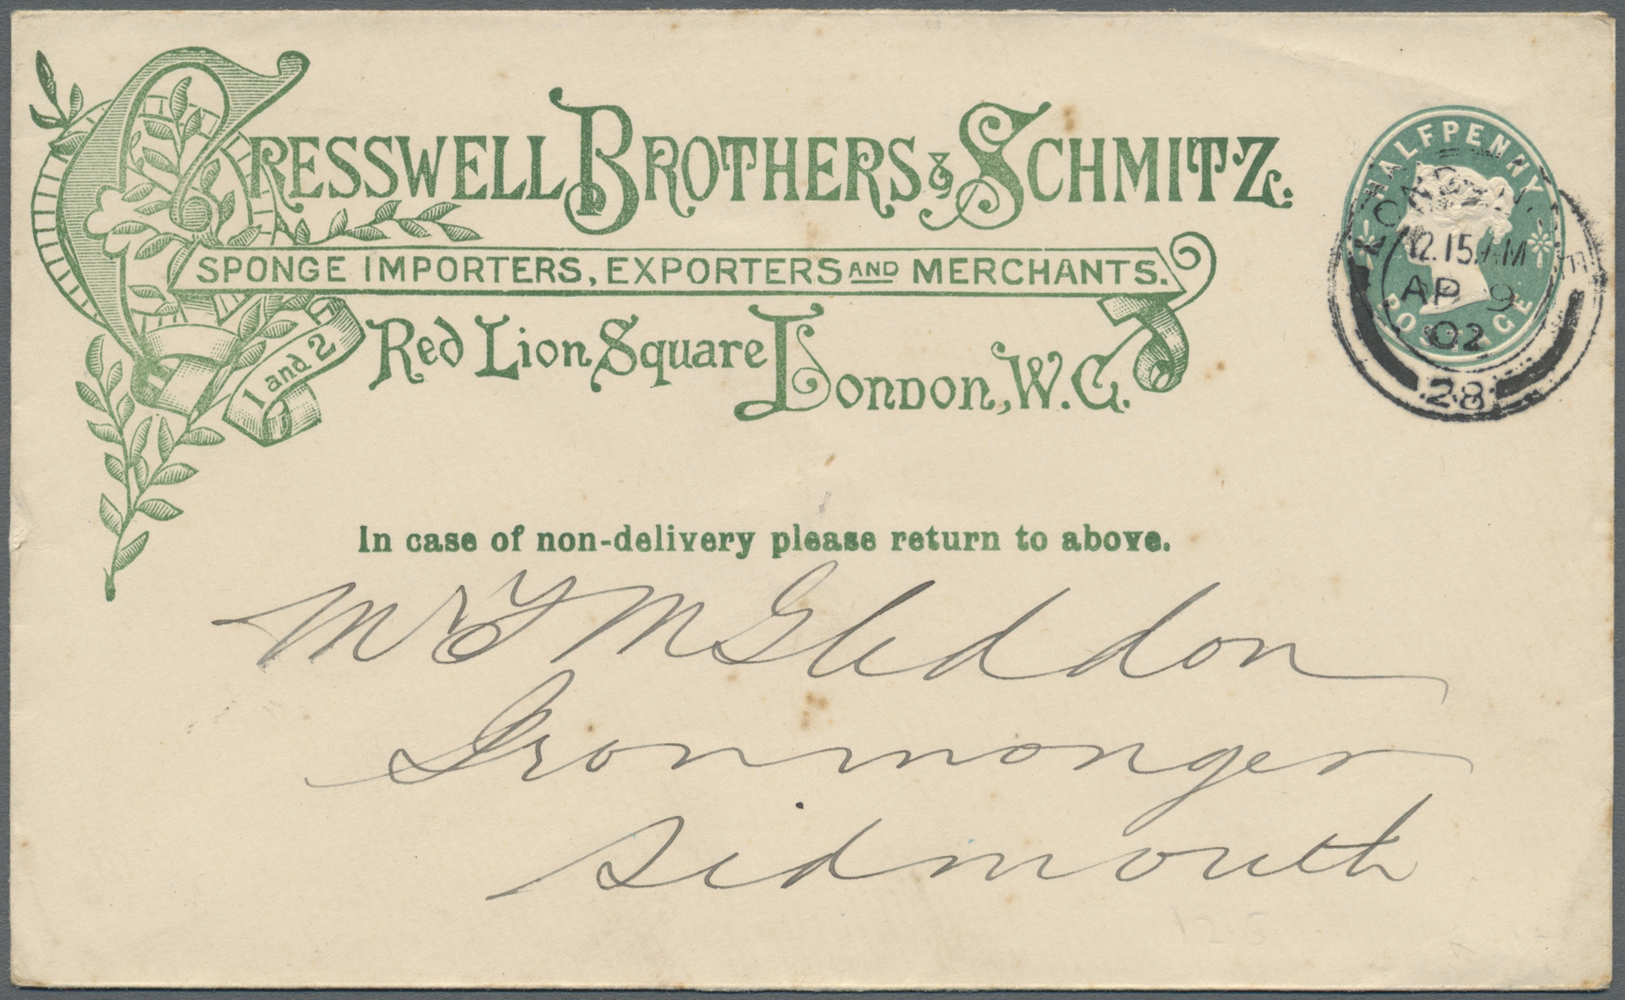 CRESSWELL BROTHERS & SCHMITZ.
SPONGE IMPORTERS, EXPORTERS AND MERCHANTS.
1 and 2 Red Lion Square London, W.C.
HALFPENNY
POSTAGE
LONDON. W.C.
12.15 AM
AP 9
02
28
In case of non-delivery please return to above.
Mr T M Gleddon
Ironmonger
Sidmouth